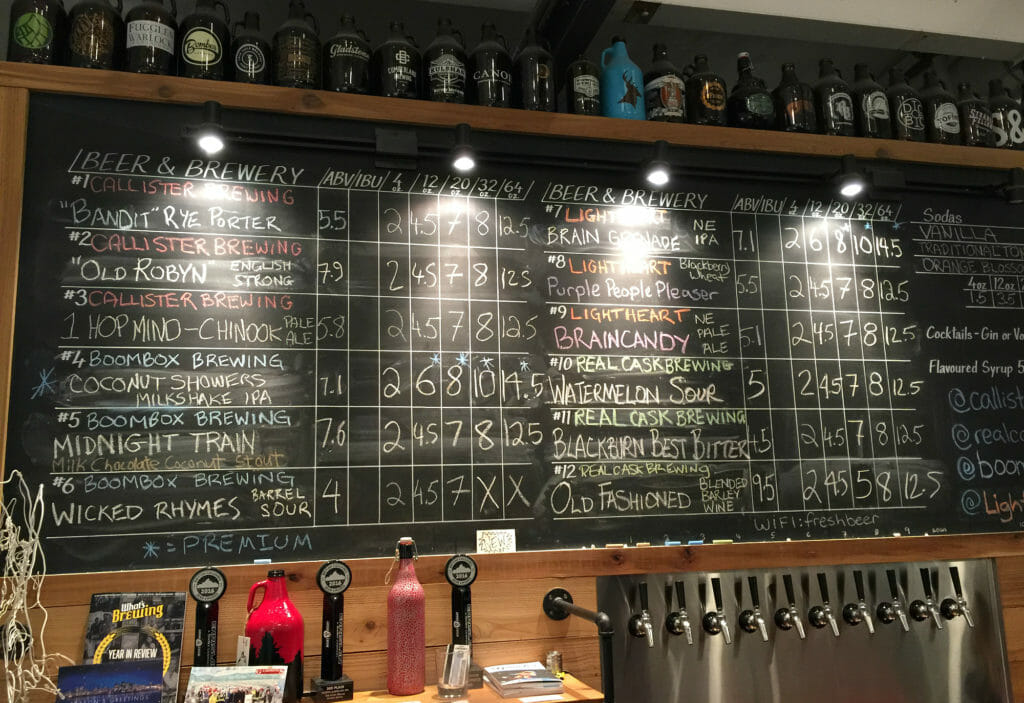 FUGGLES
WARLOCK
Bomber
Gladstone
CANOE
TOFINO
BEER & BREWERY ABV IBU 4 oz 12 oz 20 oz 32 oz 64 oz
#1 CALLISTER BREWING
"BANDIT" RYE PORTER 5.5 2 4.5 7 8 12.5
#2 CALLISTER BREWING
"OLD ROBYN" ENGLISH STRONG 7.9 2 4.5 7 8 12.5
#3 CALLISTER BREWING
1 HOP MIND - CHINOOK PALE ALE 5.8 2 4.5 7 8 12.5
#4 BOOMBOX BREWING
* COCONUT SHOWERS MILKSHAKE IPA 7.1 2 6 8* 10* 14.5*
#5 BOOMBOX BREWING
MIDNIGHT TRAIN 7.6 2 4.5 7 8 12.5
Milk Chocolate Coconut Stout
#6 BOOMBOX BREWING
WICKED RHYMES BARREL SOUR 4 2 4.5 7 X X
* = PREMIUM
BEER & BREWERY ABV IBU 4 12 20 32 64
#7 LIGHTHEART
BRAIN GRENADE NE IPA 7.1 2 6 8 10 14.5
#8 LIGHTHEART Blackberry Wheat
Purple People Pleaser 5.5 2 4.5 7 8 12.5
#9 LIGHTHEART
BRAINCANDY NE PALE ALE 5.1 2 4.5 7 8 12.5
#10 REAL CASK BREWING
WATERMELON SOUR 5 2 4.5 7 8 12.5
#11 REAL CASK BREWING
BLACKBIRN BEST BITTER 4.5 2 4.5 7 8 12.5
#12 REAL CASK BREWING
OLD FASHIONED BLENDED BARLEY WINE 9.5 2 4.5 5 8 12.5
WIFI: freshbeer
Sodas
VANILLA
TRADITIONAL TON
ORANGE BLOSSO
4oz 12oz
1.5 3.5
Cocktails - Gin or Vo
Flavoured Syrup
@callist
@realca
@boom
@Ligh
What's
Brewing
YEAR IN REVIEW
2016
2016
2016